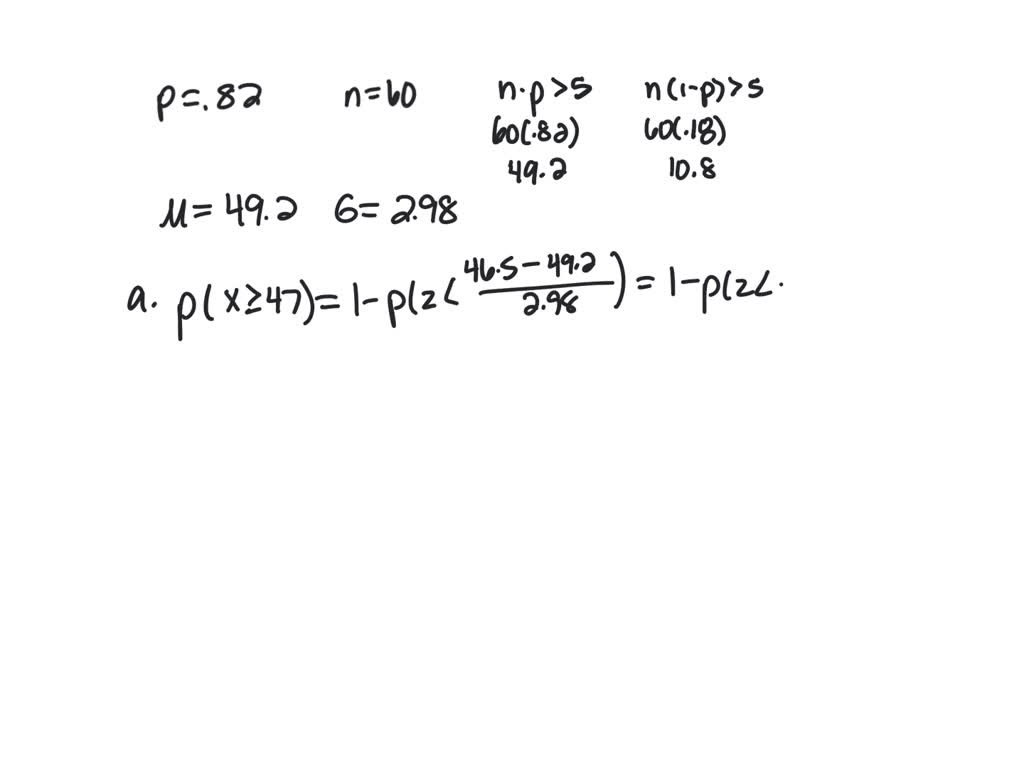 p=.82 n=60 n·p>5 n(1-p)>5
60(.82) 60(.18)
49.2 10.8
μ=49.2 6=2.98
a. p(x≥47)=1-p(z<(46.5-49.2)/2.98)=1-p(z<.